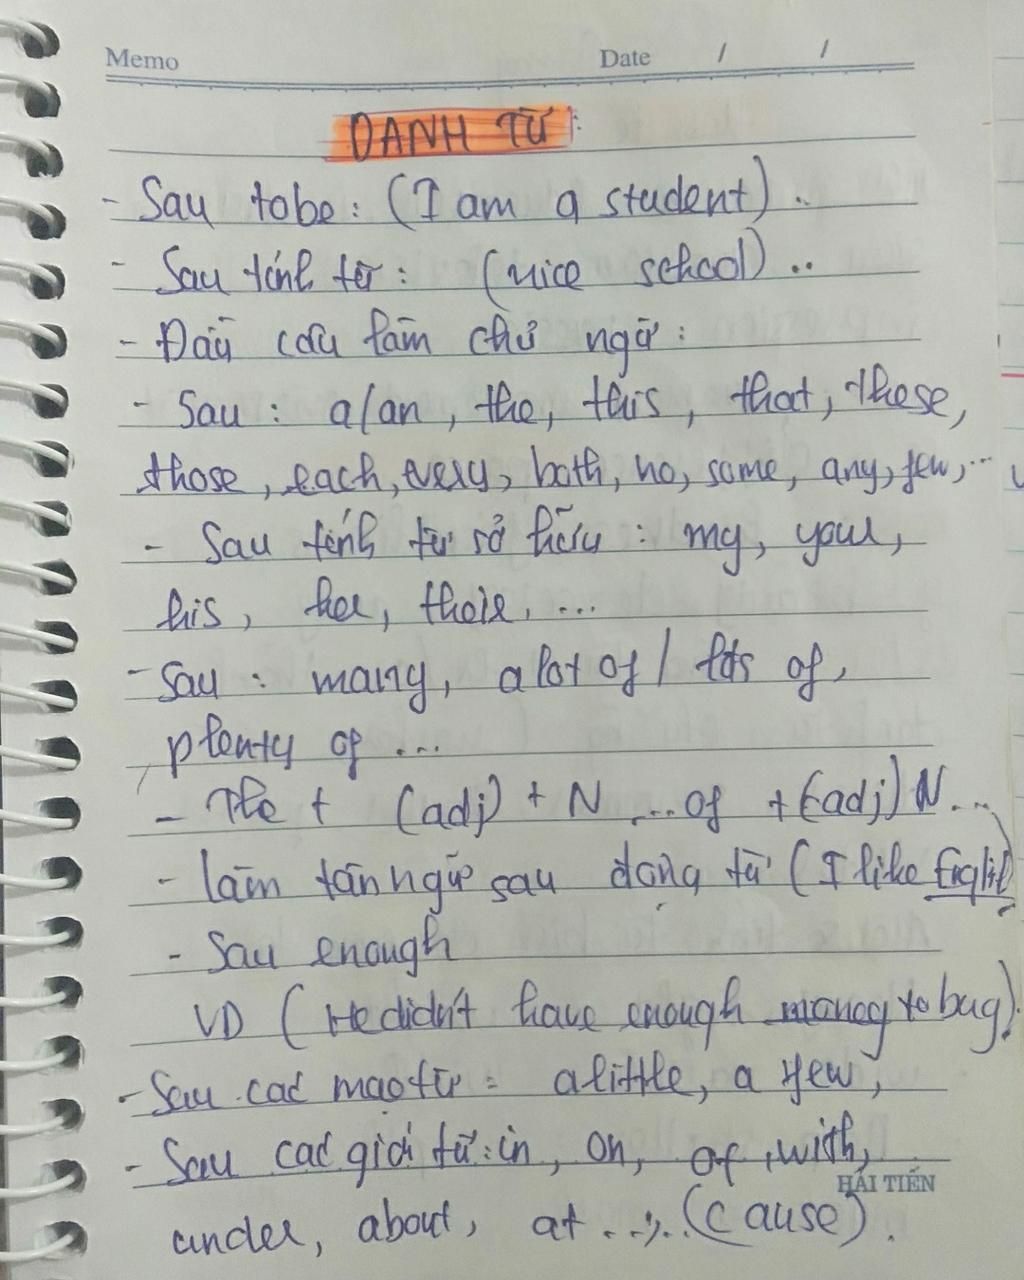 Memo Date / /
DANH TỪ:
- Sau tobe: (I am a student)..
- Sau tính từ: (nice school)..
- Đầu câu làm chủ ngữ:
- Sau: a/an, the, this, that, these,
those, each, every, both, no, some, any, few,...
- Sau tính từ sở hữu: my, your,
his, her, their, ...
- Sau: many, a lot of / lots of,
plenty of ...
- The + (adj) + N ... of + (adj) N...
- làm tân ngữ sau động từ (I like English)
- Sau enough
VD (He didn't have enough money to buy)
- Sau các mạo từ: a little, a few,
- Sau các giới từ: in, on, of, with,
HẢI TIẾN
under, about, at ... (cause).